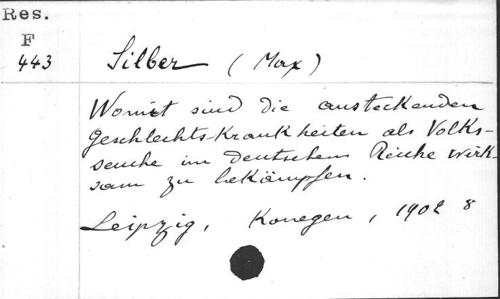 Res.
F
443
Silber (Max)
Womit sind die ansteckenden
Geschlechts-Krankheiten als Volks-
seuche im deutschen Reiche wirk-
sam zu bekämpfen.
Leipzig, Konegen, 1902 8